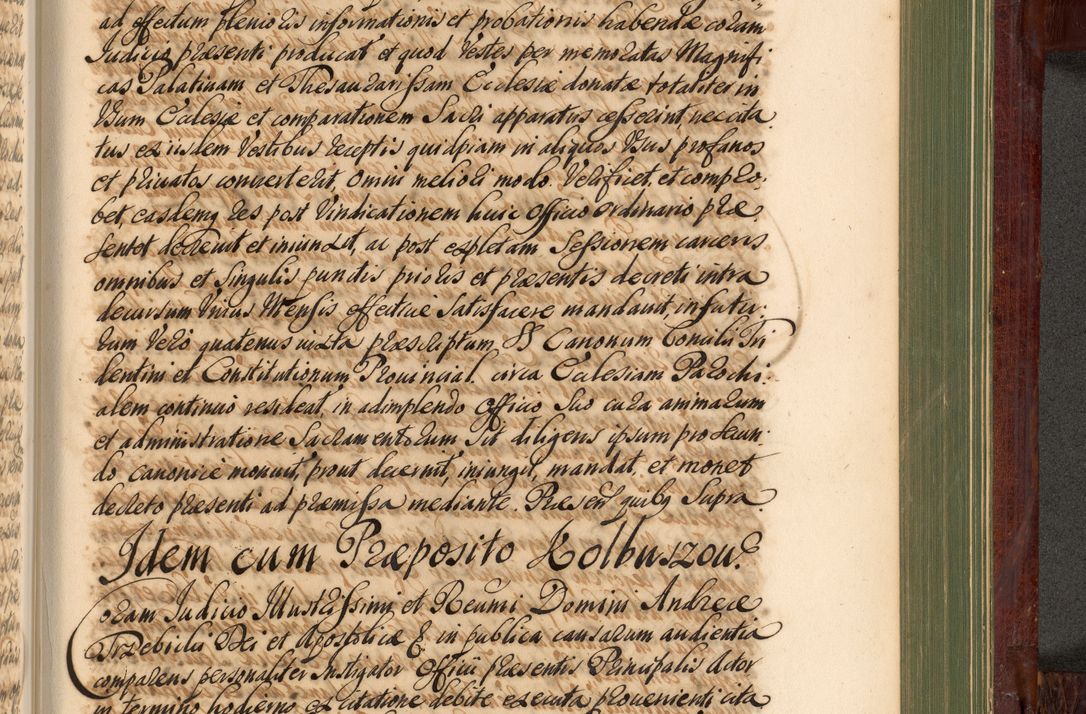 ad effectum plenioris informationis et probationis habendæ coram
Judicio præsenti producat et quod Vestes per memoratas Magnifi-
cas Palatinam et Thesaurarissam Ecclesiæ donatæ totaliter in
Usum Ecclesiæ et comparationem Sacri apparatus cesserint, nec cita-
tus ex iisdem Vestibus receptis quidpiam in aliquos Usus profanos
et privatos converterit, omni meliori modo. Verificet, et compro-
bet, easdemq res post Vindicationem huic officio ordinario præ-
sentet decrevit et iniunxit, ac post expletam Sessionem carceris
omnibus et Singulis punctis prioris et præsentis decreti intra
decursum Unius Mensis effective Satisfacere mandavit, in futu-
rum Vero quatenus iuxta præscriptum SS Canonum Concilii Tri-
dentini et Constitutionum Provincial. circa Ecclesiam Parochi-
alem continuo resideat, in adimplendo officio Suo cura animarum
et administratione Sacramentorum Sit diligens ipsum pro Secun-
do canonice monuit, prout decernit, iniungit, mandat, et monet
decreto præsenti ad præmissa mediante. Præsen quibq Supra.
Idem cum Præposito Kolbuszov.
Coram Judicio Illustrissimi et Reumi Domini Andreæ
Trzebicki Dei et Apostolicæ & in publica causarum audientia
comparens personaliter Instigator Officii præsentis Principalis Actor
in termino hodierno ex citatione debite executa provenienti cita-